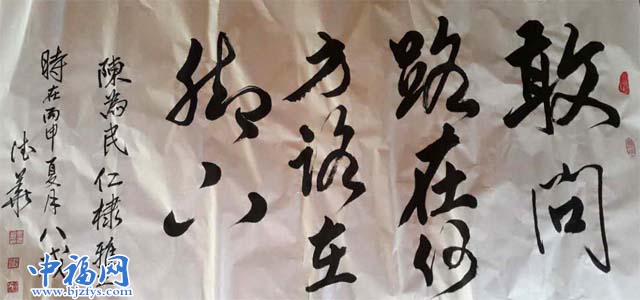 敢問
路在何
方路在
脚下
陳為民仁棣雅
時在丙申夏月八戒
德華
申福网
www.bjzfys.com